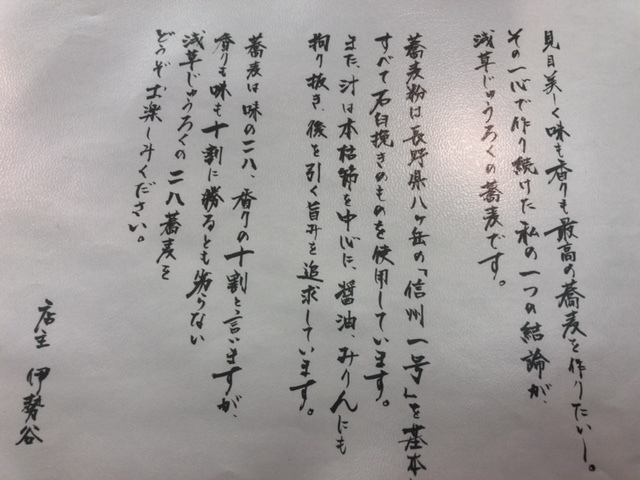 見目美しく味も香りも最高の蕎麦を作りたい―。
その一心で作り続けた私の一つの結論が、
浅草じゅうろくの蕎麦です。
蕎麦粉は長野県八ヶ岳の「信州一号」を基本に
すべて石臼挽きのものを使用しています。
また、汁は本枯節を中心に、醤油、みりんにも
拘り抜き、後を引く旨みを追求しています。
蕎麦は味の二八、香りの十割と言いますが、
香りも味も十割に勝るとも劣らない
浅草じゅうろくの二八蕎麦を
どうぞお楽しみください。
店主 伊勢谷